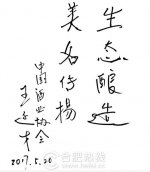 生态酿造
美名传揚
中国酒业协会
王延才
2017.5.20
合肥热线